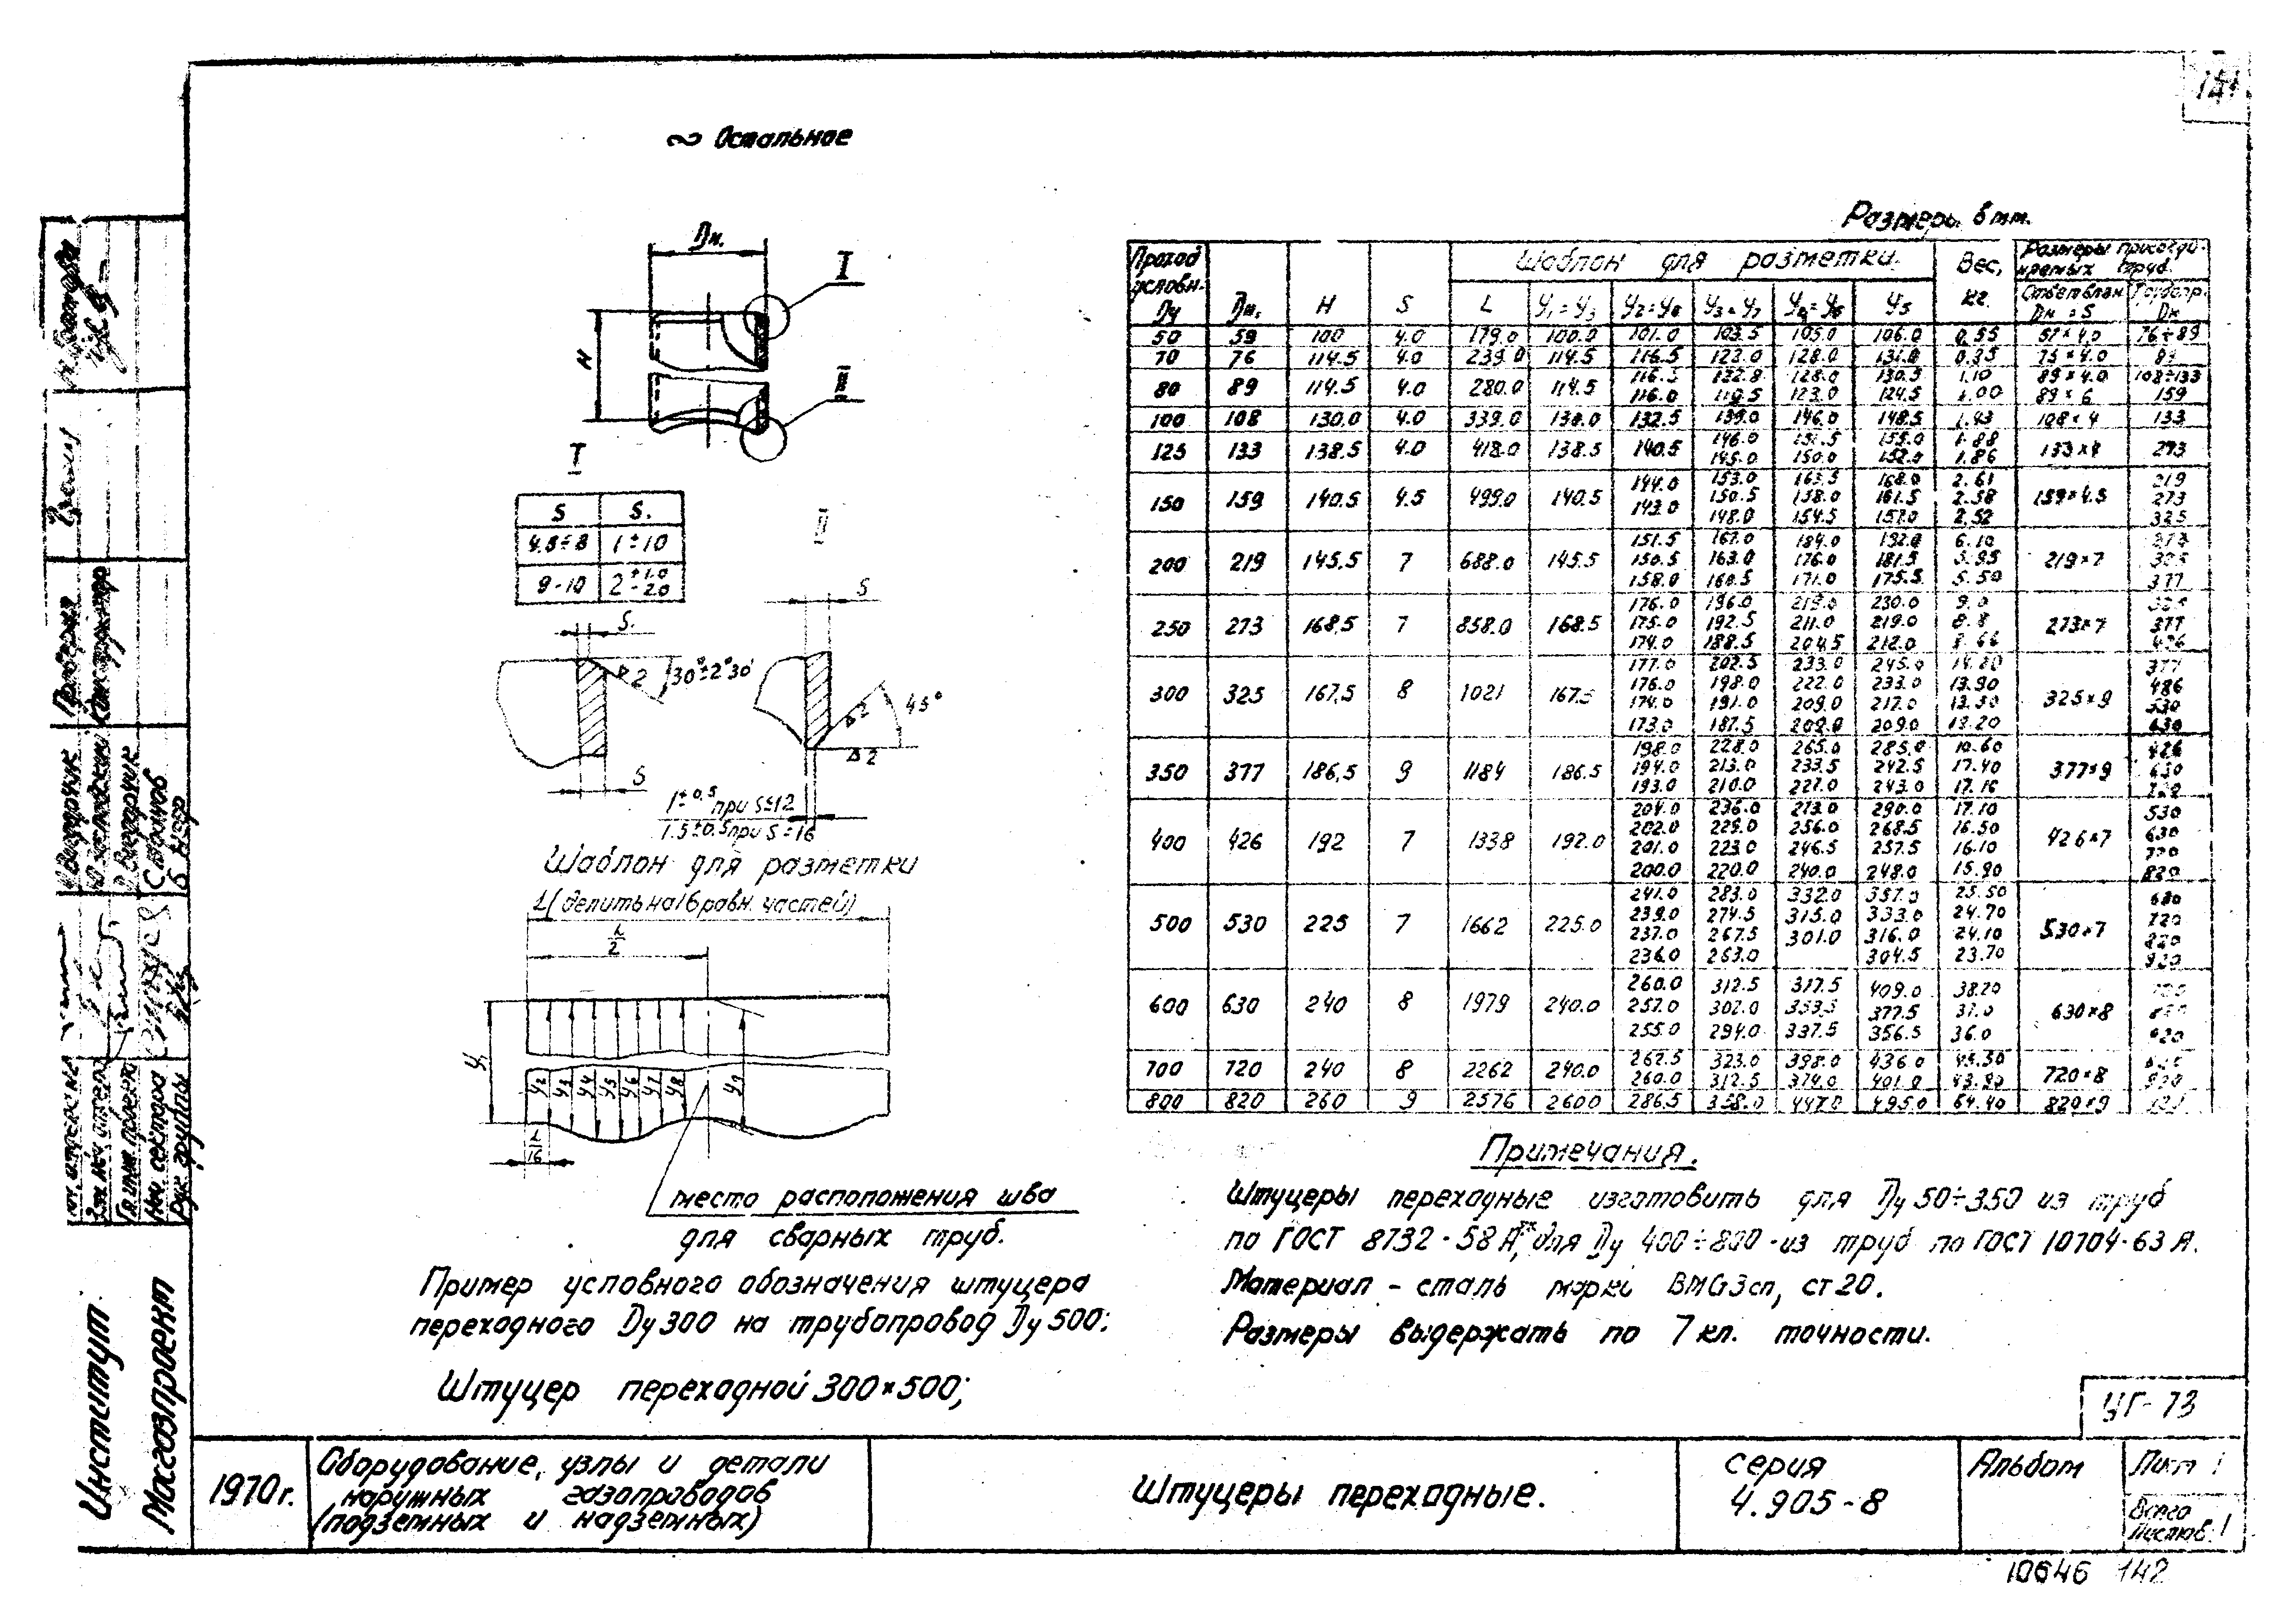 141
∾ Остальное
Dн.
I
H
II
I
S S.
4.8÷8 1±10
9-10 2 +1.0 -2.0
II
S.
S
▽2
30°±2°30'
45°
▽2
∆2
S
1±0.5 при S≤12
1.5±0.5 при S=16
Шаблон для разметки
L (делить на 16 равн. частей)
L/2
У1
У2 У3 У4 У5 У6 У7 У8
У1
L/16
место расположения шва
для сварных труб.
Пример условного обозначения штуцера
переходного Dу 300 на трубопровод Dу 500:
Штуцер переходной 300×500;
Размеры в мм.
Проход условн. Dу Dн. H S Шаблон для разметки Вес, кг. Размеры присоединяемых труб.
L У1=У3 У2=У8 У3=У7 У4=У6 У5 Ответвлен. Dн × S Трубопр. Dн
50 59 100 4.0 179.0 100.0 101.0 103.5 105.0 106.0 0,55 57×4,0 76÷89
70 76 114.5 4.0 239.0 114.5 116.5 123.0 128.0 131.0 0.85 75×4.0 89
80 89 114.5 4.0 280.0 114.5 116.5 122.8 128.0 130.5 1.10 89×4.0 108÷133
116.0 119.5 123.0 124.5 1.00 89×6 159
100 108 130.0 4.0 339.0 130.0 132.5 139.0 146.0 148.5 1.43 108×4 133
125 133 138.5 4.0 418.0 138.5 140.5 146.0 151.5 155.0 1.88 133×4 273
145.0 150.0 152.0 1.86
150 159 140.5 4.5 499.0 140.5 144.0 153.0 163.5 168.0 2.61 159×4.5 219
143.0 150.5 158.0 161.5 2.58 273
148.0 154.5 157.0 2.52 325
200 219 145.5 7 688.0 145.5 151.5 167.0 184.0 192.0 6.10 219×7 273
150.5 163.0 176.0 181.5 5.95 325
158.0 160.5 171.0 175.5 5.50 377
250 273 168.5 7 858.0 168.5 176.0 196.0 219.0 230.0 9.0 273×7 325
175.0 192.5 211.0 219.0 8.8 377
174.0 188.5 204.5 212.0 8.66 426
300 325 167.5 8 1021 167.5 177.0 202.5 233.0 245.0 14.20 325×9 377
176.0 198.0 222.0 233.0 13.90 486
174.0 191.0 209.0 217.0 13.30 530
173.0 187.5 202.0 209.0 13.20 630
350 377 186.5 9 1184 186.5 198.0 228.0 265.0 285.0 18.60 377×9 426
194.0 213.0 233.5 242.5 17.40 630
193.0 210.0 227.0 243.0 17.16 720
400 426 192 7 1338 192.0 204.0 236.0 273.0 290.0 17.10 426×7 530
202.0 229.0 256.0 268.5 16.50 630
201.0 223.0 246.5 257.5 16.10 720
200.0 220.0 240.0 248.0 15.90 820
500 530 225 7 1662 225.0 241.0 283.0 332.0 357.0 25.50 530×7 630
239.0 274.5 315.0 333.0 24.70 720
237.0 267.5 301.0 316.0 24.10 820
236.0 263.0 304.5 23.70 920
600 630 240 8 1979 240.0 260.0 312.5 377.5 409.0 38.20 630×8 720
257.0 302.0 353.5 377.5 37.0 820
255.0 294.0 337.5 356.5 36.0 920
700 720 240 8 2262 240.0 262.5 323.0 398.0 436.0 45.30 720×8 820
260.0 312.5 374.0 401.0 43.80 920
800 820 260 9 2576 260.0 286.5 358.0 447.0 495.0 64.40 820×9
Примечания.
Штуцеры переходные изготовить для Dу 50÷350 из труб
по ГОСТ 8732-58 А**, для Dу 400÷800 - из труб по ГОСТ 10704-63 А.
Материал - сталь марки ВМСт3сп, ст 20.
Размеры выдержать по 7 кл. точности.
УГ-73
1970г.
Оборудование, узлы и детали
наружных газопроводов
(подземных и надземных)
Штуцеры переходные.
серия
4.905-8
Альбом
Лист 1
Всего
Листов: 1
10646 142
Институт
Мосгазпроект
Нач сектора
Рук группы
Проверил
Конструктор